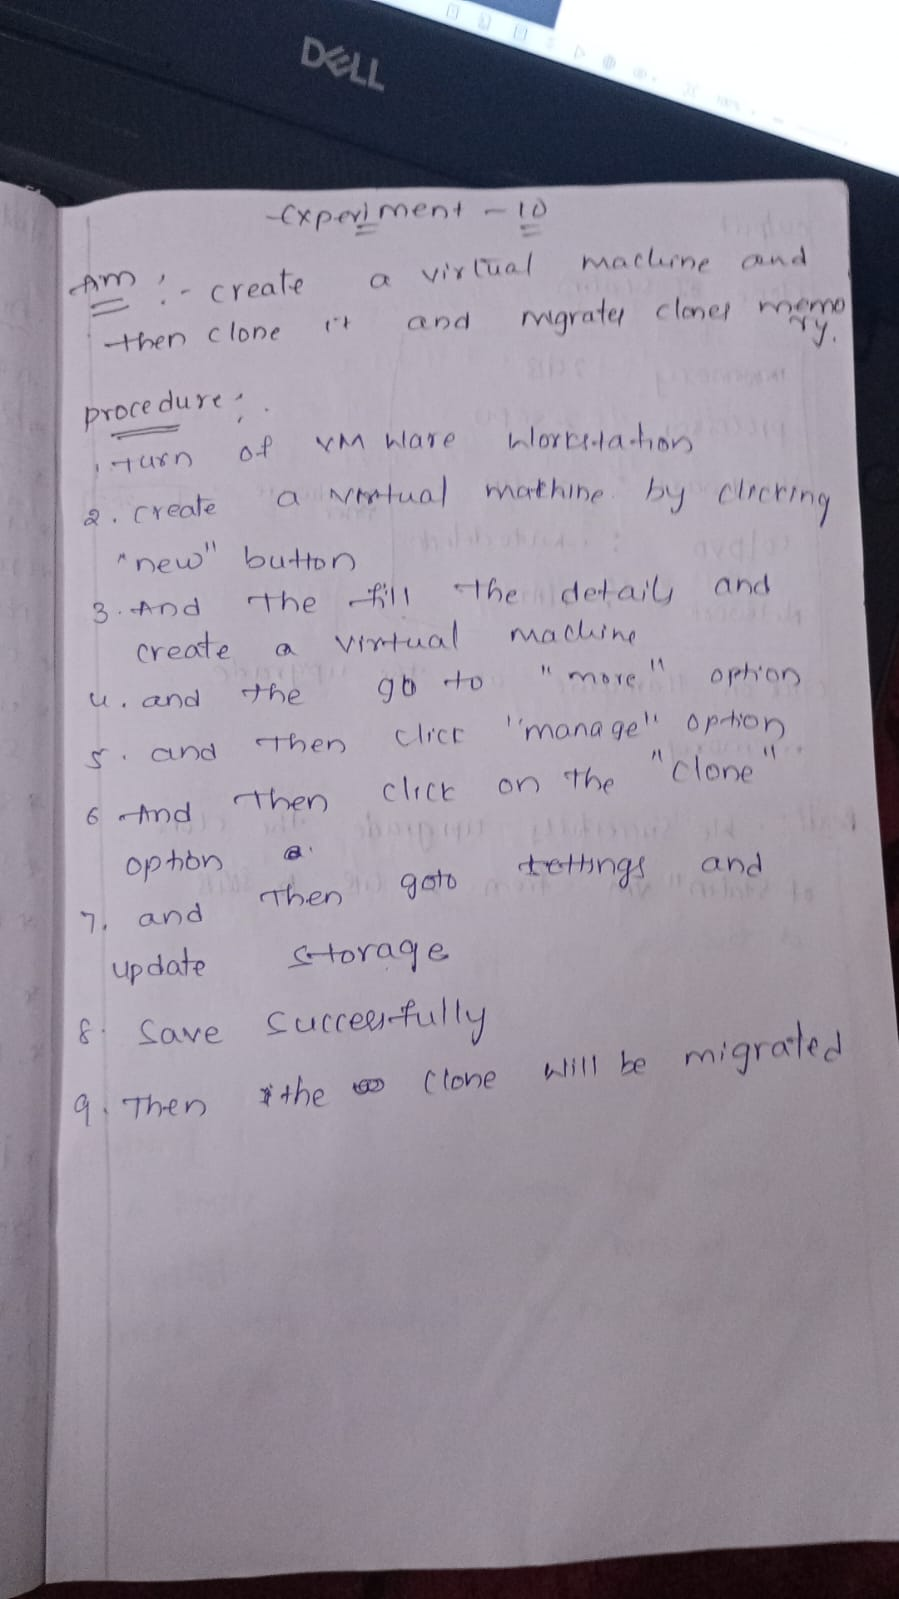 DELL
Experiment - 10
Aim :- create a virtual machine and
then clone it and migrates clones memo
ry.
procedure :
1. Turn of VM Ware Workstation
2. create a virtual machine by clicking
"new" button
3. And the fill the details and
create a virtual machine
4. and the go to "more" option
5. and then click "manage" option
6 And Then click on the "clone"
option
7. and Then goto settings and
update storage
8. Save successfully
9. Then the clone will be migrated